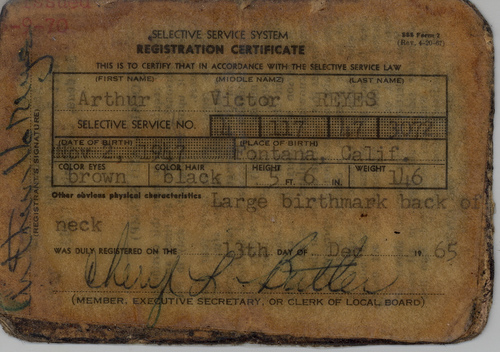 -9-70
SELECTIVE SERVICE SYSTEM
SSS Form 2
REGISTRATION CERTIFICATE
THIS IS TO CERTIFY THAT IN ACCORDANCE WITH THE SELECTIVE SERVICE LAW
(FIRST NAME) (MIDDLE NAME) (LAST NAME)
Arthur Victor REYES
SELECTIVE SERVICE NO. 117 47
(DATE OF BIRTH) (PLACE OF BIRTH)
1947 Fontana, Calif.
COLOR EYES COLOR HAIR HEIGHT WEIGHT
brown black 5 FT. 6 IN. 146
Other obvious physical characteristics Large birthmark back of
neck
WAS DULY REGISTERED ON THE 13th DAY OF Dec 19 65
Cheryl L. Butler
(MEMBER, EXECUTIVE SECRETARY, OR CLERK OF LOCAL BOARD)
(REGISTRANT'S SIGNATURE)